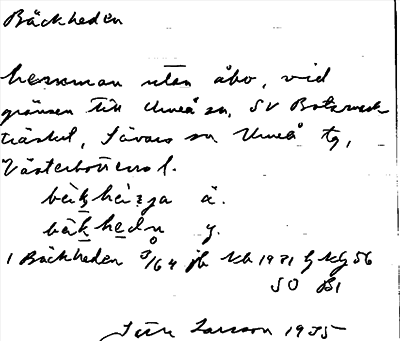 Bäckheden
hemman utan åbo, vid
gränsen till Umeå sn, SV Botsmark
träsket, Sävars sn Umeå tg,
Västerbottens l.
å.
bäkhedn y.
1 Bäckheden 9/64 jb Kb 1931 G Kbl 56
SO B1
Larsson 1935